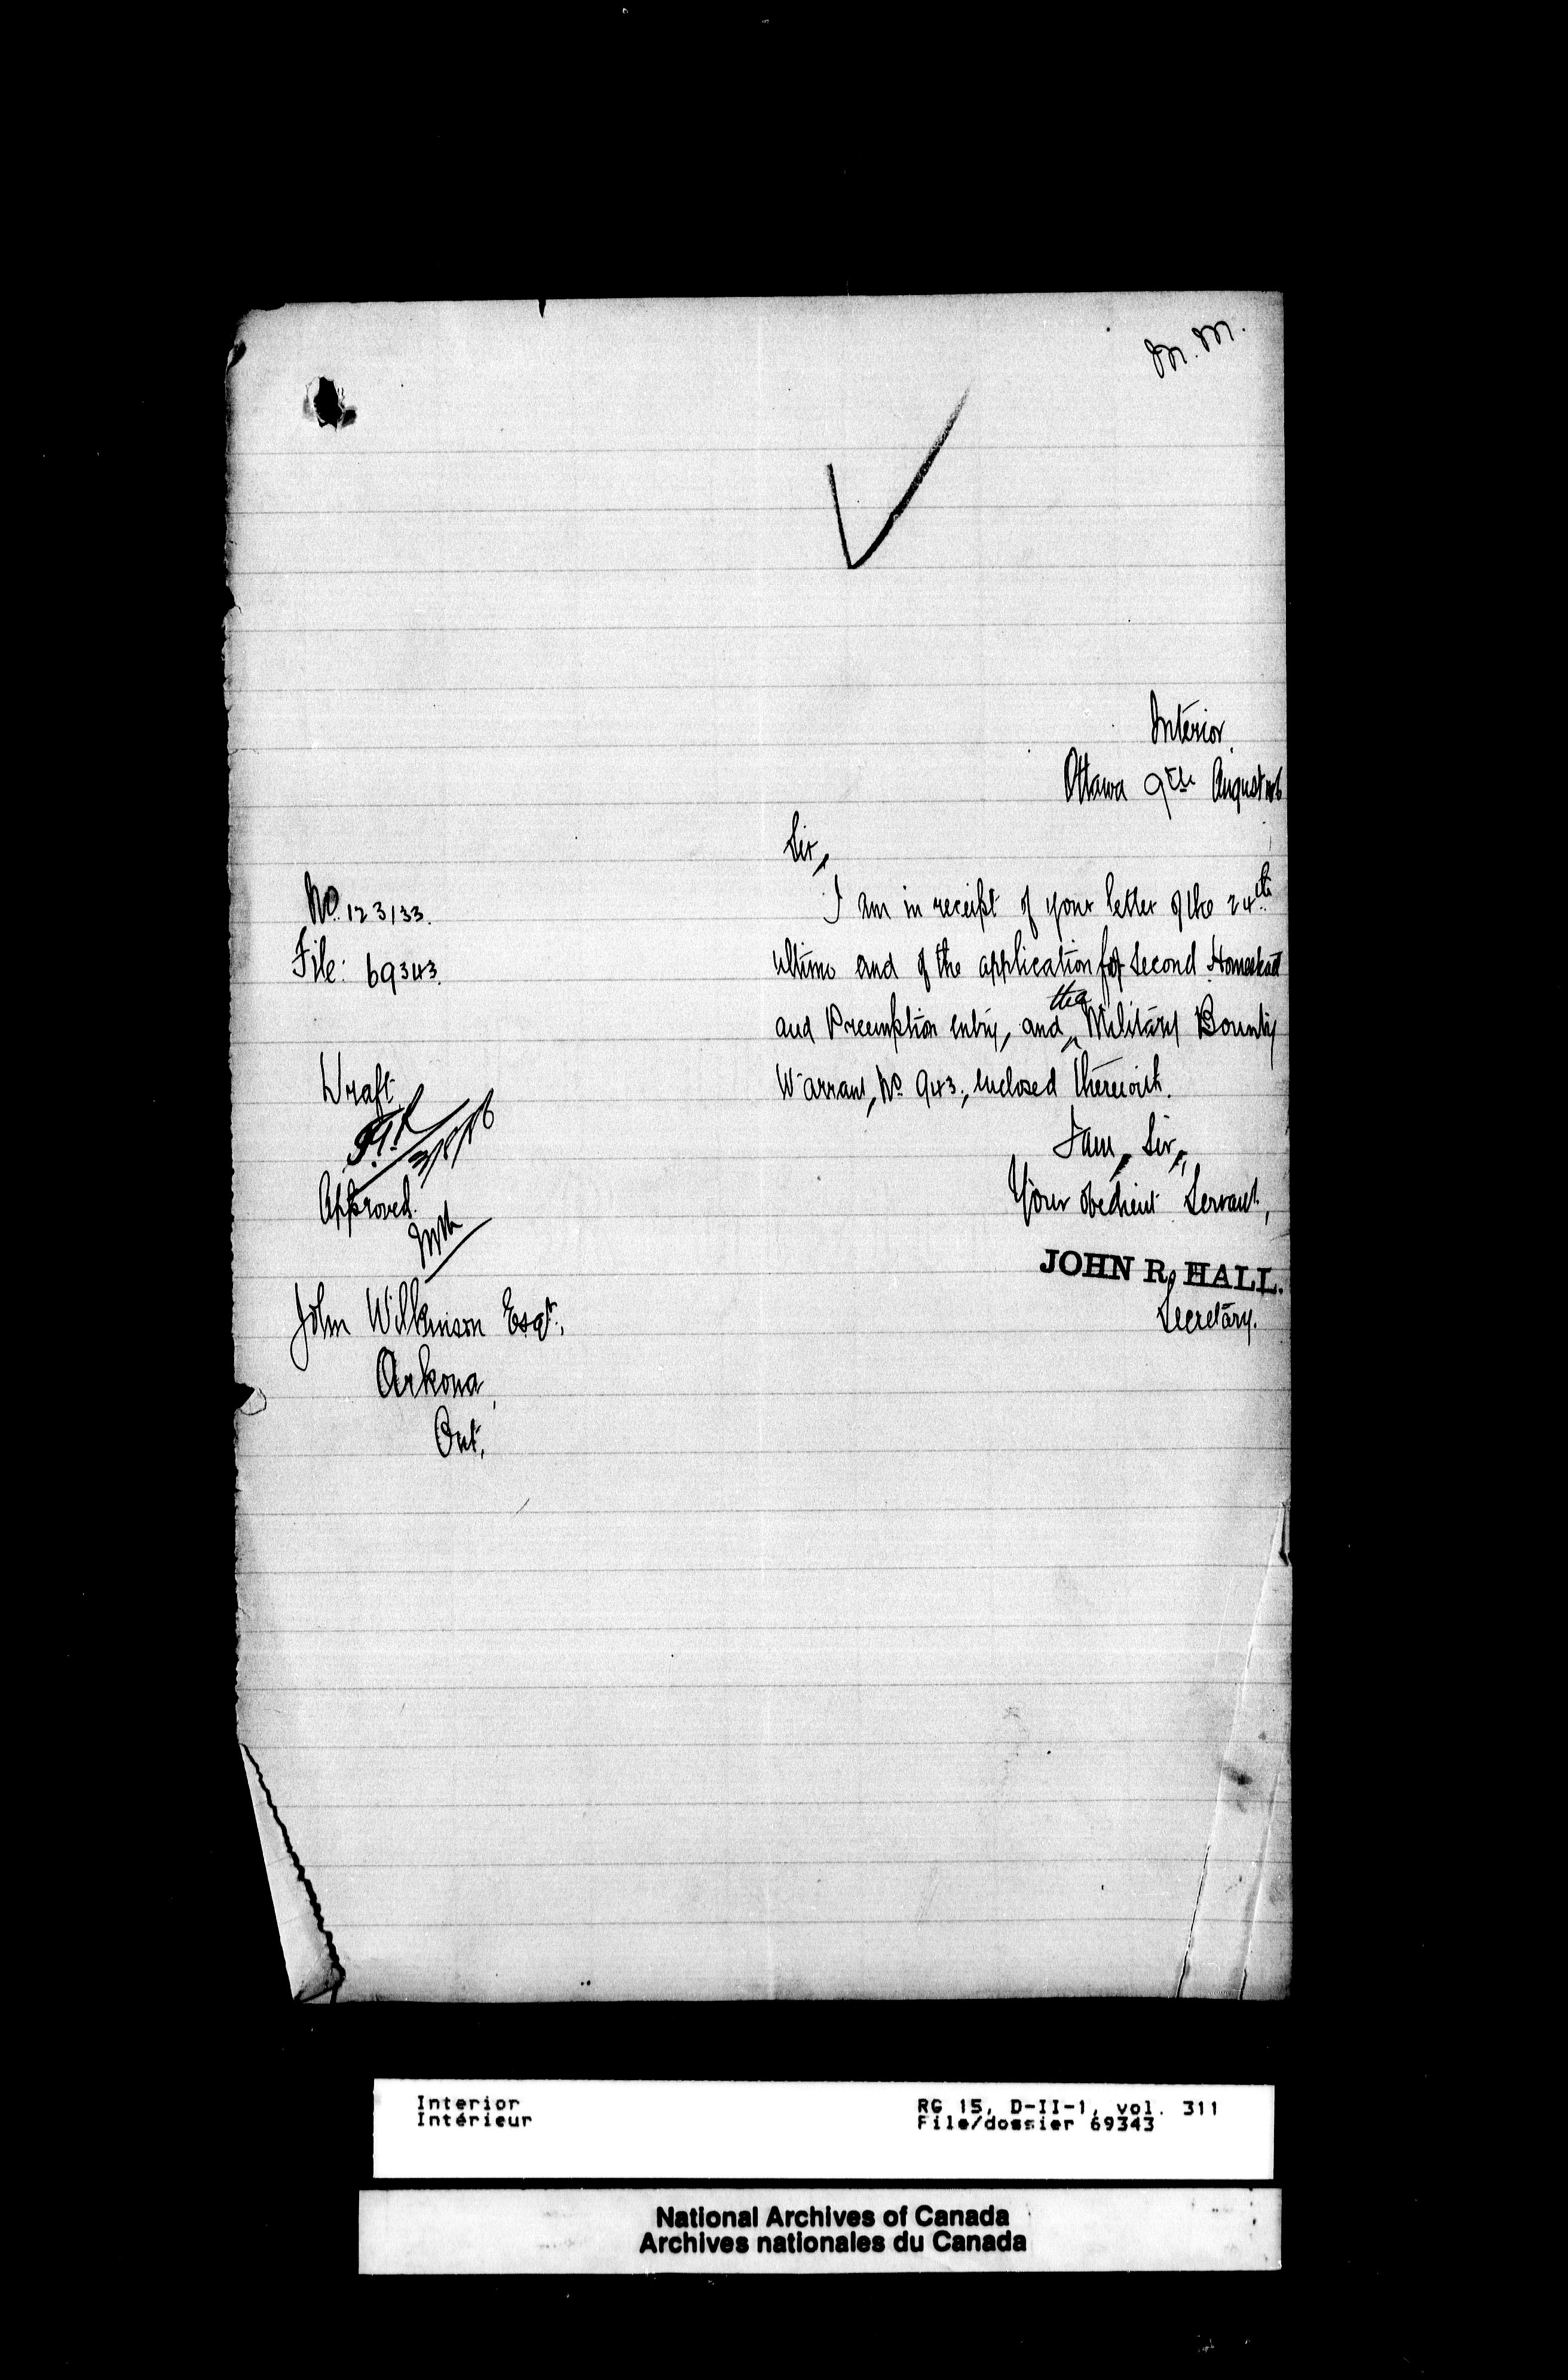 M.M.
Interior
Ottawa 9th August
Sir,
No. 123133.
File: 69343.
I am in receipt of your letter of the 24th
ultimo and of the application for second Homestead
and Preemption entry, and the Military Bounty
Warrant, No 943, enclosed therewith.
Draft
Approved.
I am, Sir,
Your obedient Servant,
JOHN R. HALL.
Secretary.
John Wilkinson Esqr.,
Arkona,
Ont.
Interior
Intérieur
RG 15, D-II-1, vol. 311
File/dossier 69343
National Archives of Canada
Archives nationales du Canada